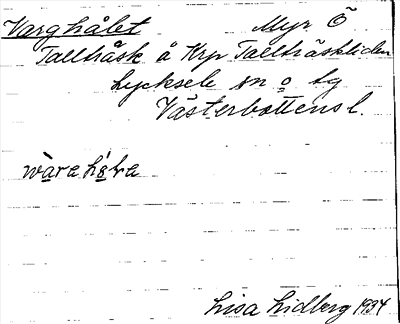 Varghålet Myr Ö
Tallträsk å Krp Tallträskliden
Lycksele sn o lg
Västerbottens l.
Lisa Lidberg 1934